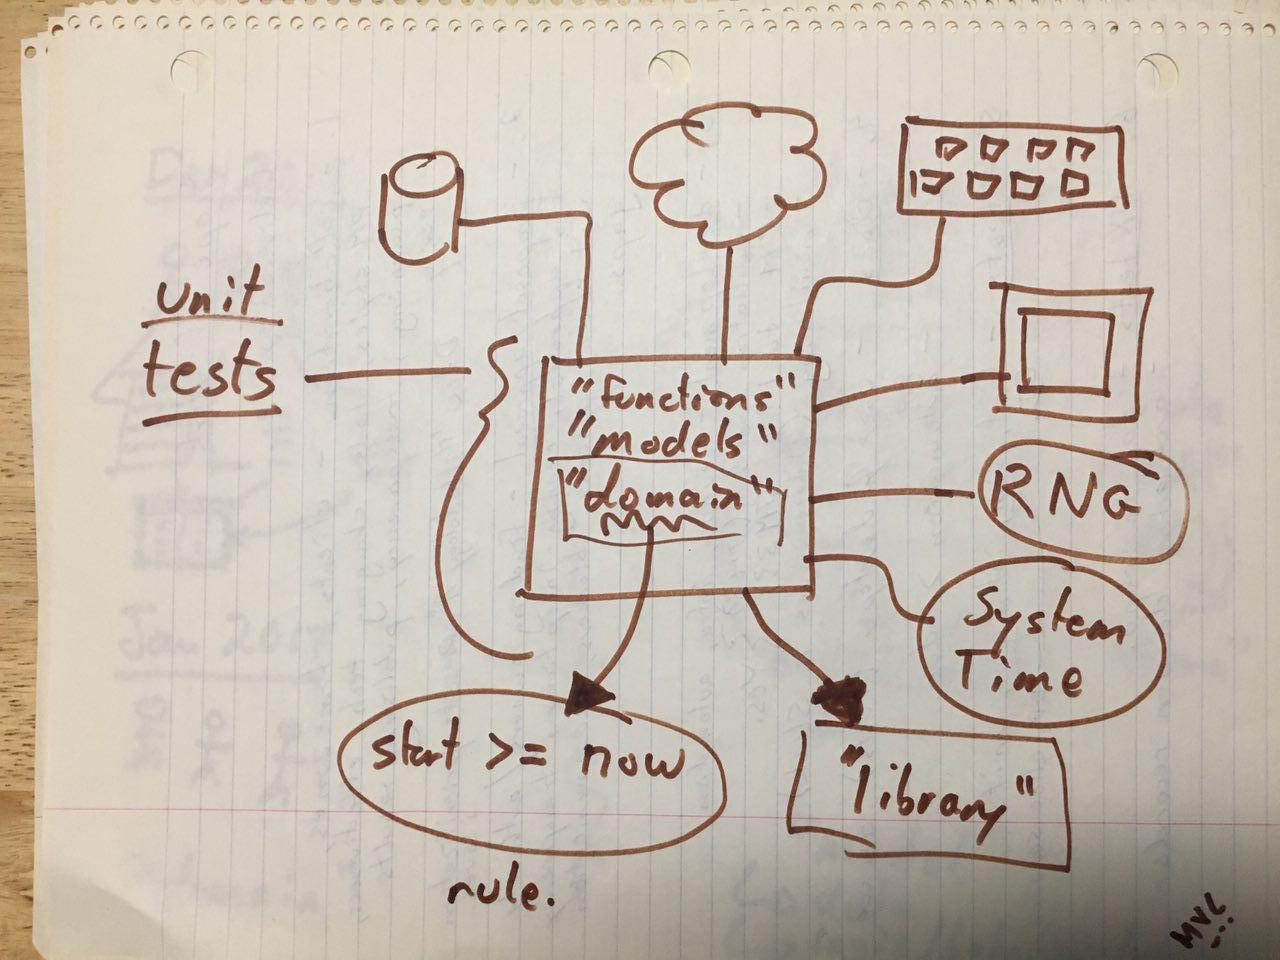 unit
tests
"functions"
"models"
"domain"
RNG
System
Time
start >= now
rule.
"library"